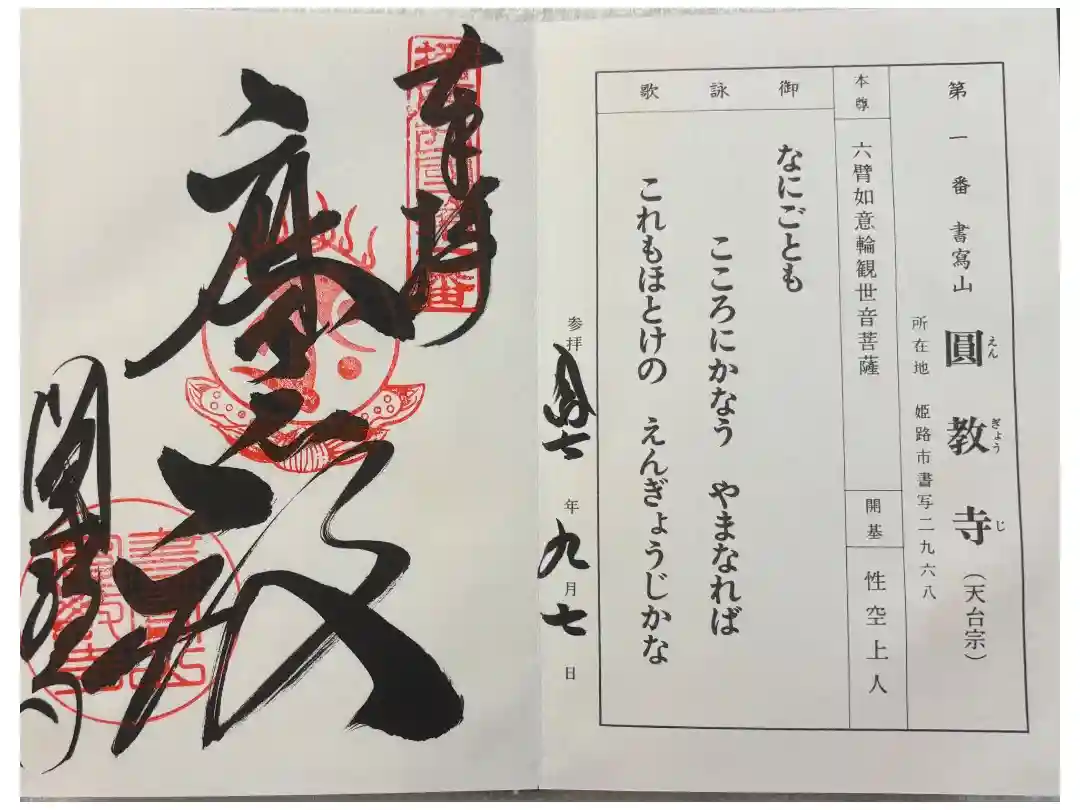 第一番 書寫山 圓教寺（天台宗）
えん ぎょう じ
所在地 姫路市書写二九六八
本尊 六臂如意輪観世音菩薩
開基 性空上人
御詠歌
なにごとも
こころにかなう やまなれば
これもほとけの えんぎょうじかな
参拝 七年九月七日
奉拝
摩尼殿
圓教寺